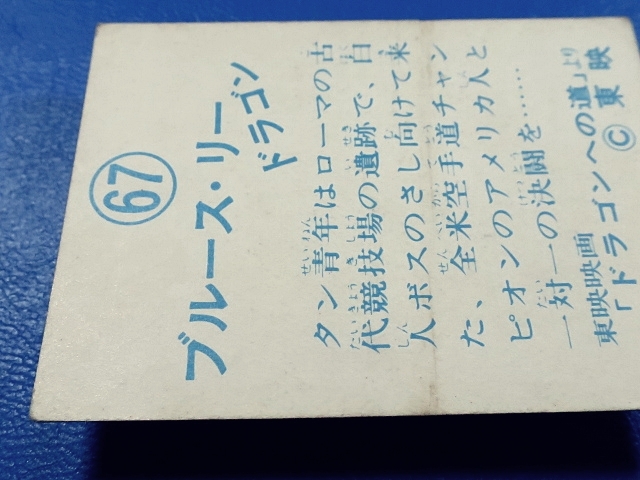 67
ブルース・リー
ドラゴン
タン青年はローマの古
代競技場の遺跡で、白
人ボスのさし向けて来
た、全米空手道チャン
ピオンのアメリカ人と
一対一の決闘を……
東映映画
「ドラゴンへの道」より
©東映